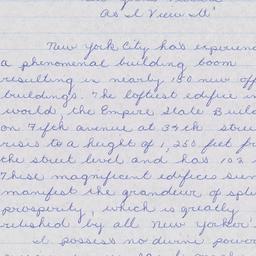 As I View It"
New York City has experienc
a phenomenal building boom
resulting in nearly 150 new off
buildings. The loftiest edifice in
world, the Empire State Build
on Fifth avenue at 34th stree
rises to a height of 1,250 feet fr
the street level and has 102 s
These magnificent edifices sure
manifest the grandeur of sple
prosperity, which is greatly
relished by all New Yorker's
I possess no divine power